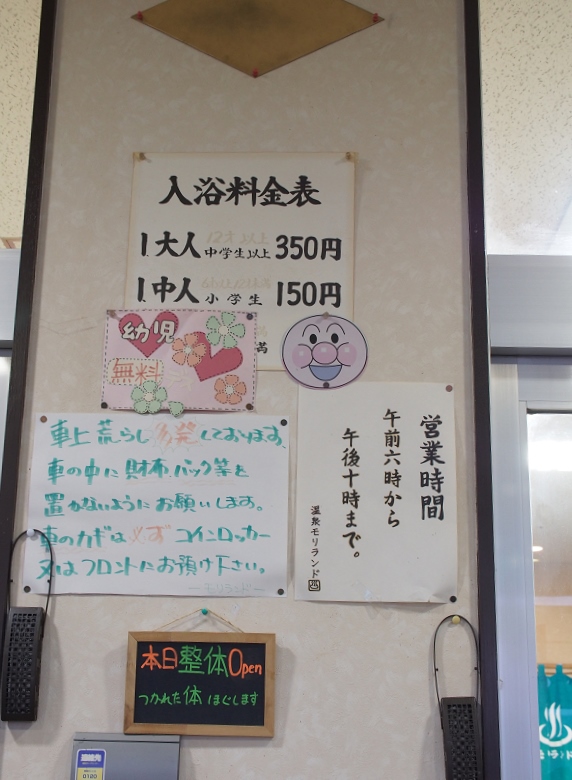 入浴料金表
1.大人 12才以上 中学生以上 350円
1.中人 小学生 150円
満
幼児
無料
営業時間
午前六時から
午後十時まで。
温泉モリランド
車上荒らし多発しております。
車の中に財布、バック等を
置かないようにお願いします。
車のカギは必ずコインロッカー
又はフロントにお預け下さい。
モリランド
本日整体Open
つかれた体ほぐします
0120